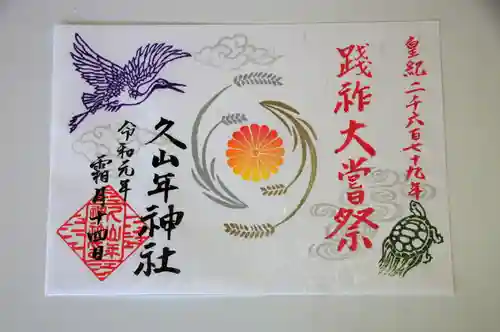 皇紀二千六百七十九年
踐祚大嘗祭
久山年神社
令和元年
霜月十四日